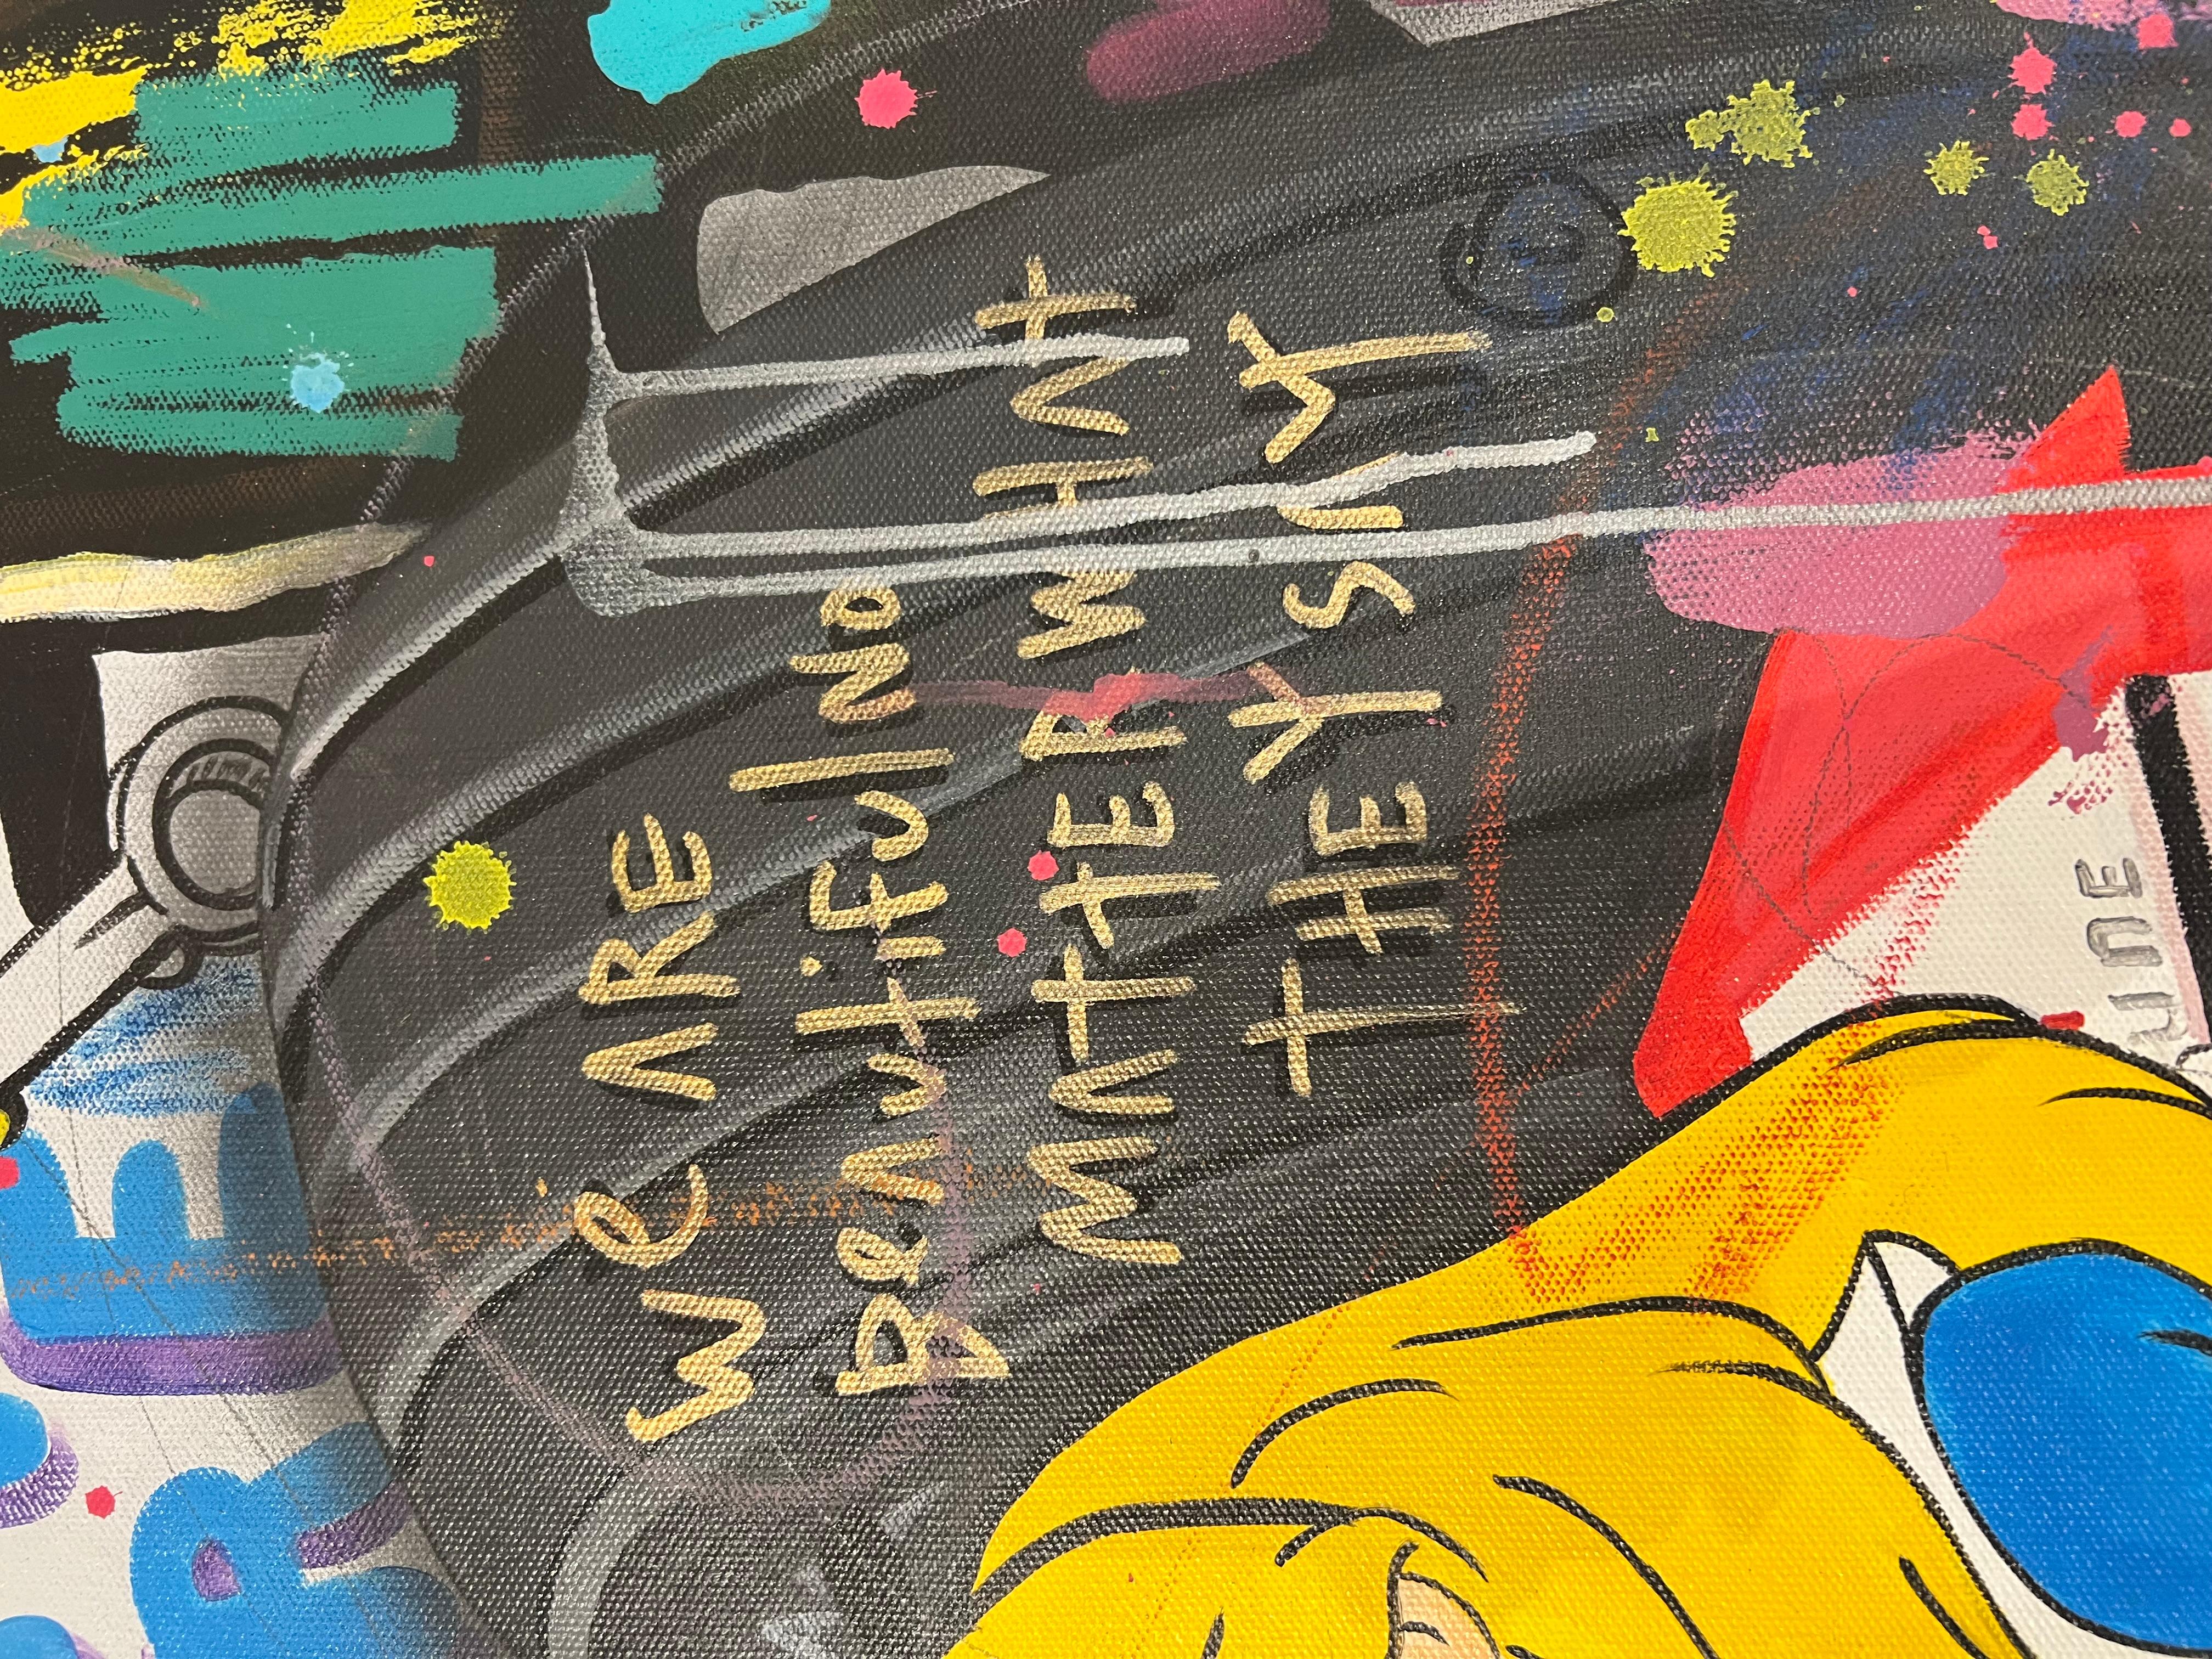 We ARE
Beautiful No
MATTER WHAT
THEY SAY